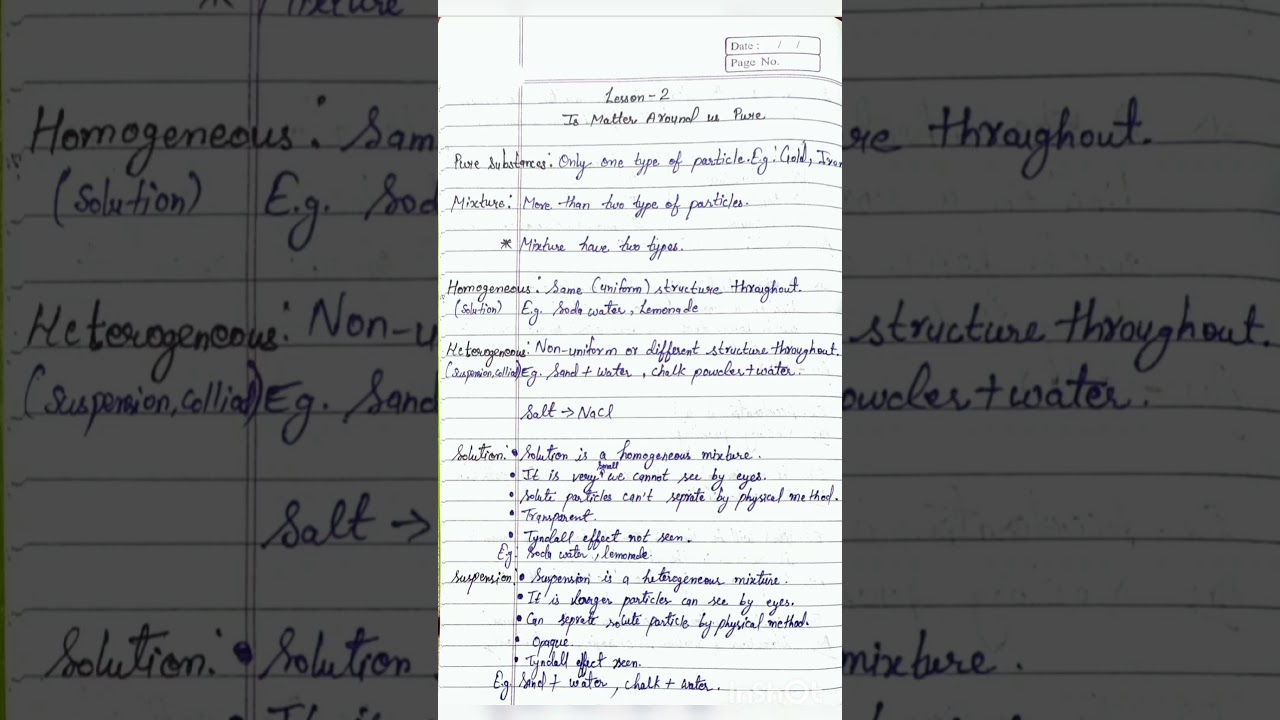 Date : / /
Page No.
Lesson - 2
Is Matter Around us Pure
Pure Substances: Only one type of particle. Eg: Gold, Iron
Mixture: More than two type of particles.
* Mixture have two types.
Homogeneous: Same (uniform) structure throughout.
(Solution) E.g. Soda water, Lemonade
Heterogeneous: Non-uniform or different structure throughout.
(Suspension, collial) Eg. Sand + water, chalk powder + water.
Salt → NaCl
Solution: • Solution is a homogeneous mixture.
• It is very small we cannot see by eyes.
• Solute particles can't seprate by physical method.
• Transparent.
• Tyndall effect not seen.
Eg. Soda water, lemonade.
Suspension: • Suspension is a heterogeneous mixture.
• It is larger particles can see by eyes.
• Can seprate solute particle by physical method.
• Opaque
• Tyndall effect seen.
E.g. Sand + water, chalk + water.
InShot